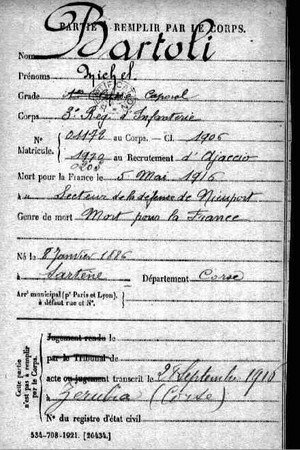 PARTIE À REMPLIR PAR LE CORPS.
Nom Bartoli
Prénoms Michel
Grade Caporal
Corps 3e Reg. d'Infanterie
N° 01172 au Corps. — Cl. 1906
Matricule. 1929 au Recrutement d'Ajaccio
Mort pour la France le 5 Mai 1916
à Secteur de la défense de Nieuport
Genre de mort Mort pour la France
Né le 8 Janvier 1886
à Sartène Département Corse
Arrt municipal (pr Paris et Lyon).
à défaut rue et N°.
Cette partie n'est pas à remplir par le Corps.
Jugement rendu le
par le Tribunal de
acte ou jugement transcrit le 28 Septembre 1916
à Zerubia (Corse)
N° du registre d'état civil
534-708-1921. [26434.]